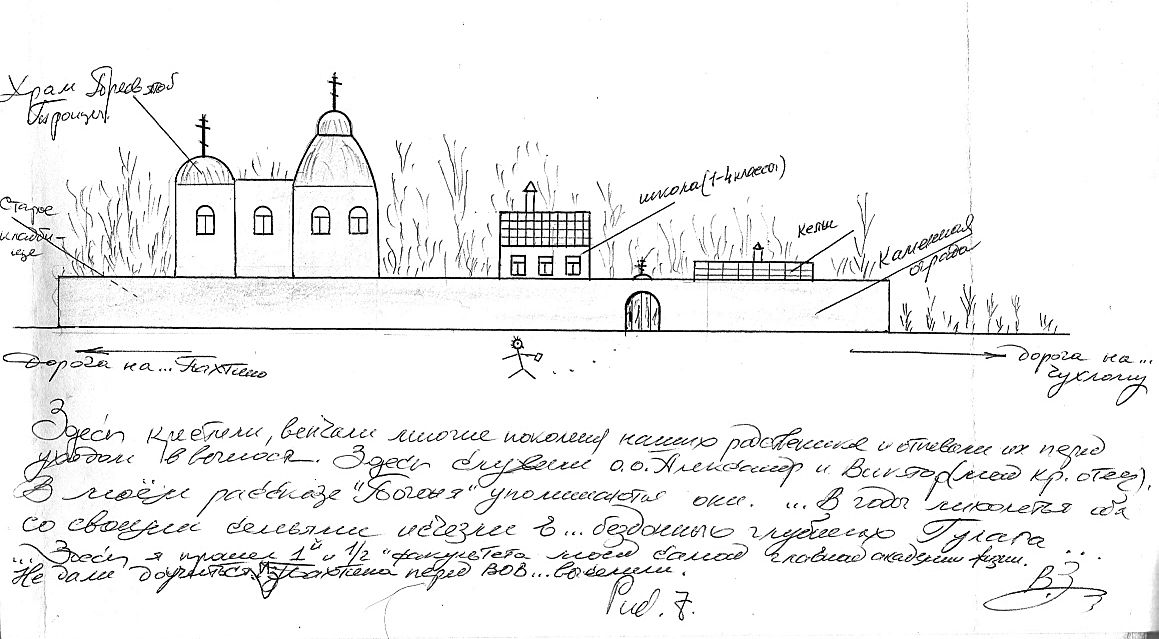 Храм Пресвятой
Троицы.
школа (1-4 классы)
Старое
кладби-
ще
кельи
Каменная
ограда
Дорога на... Пахтино
Дорога на...
Чухлому
Здесь крестили, венчали многие поколения наших родственников и отпевали их перед
уходом в вечность. Здесь служили о.о. Александр и Виктор (мой кр. отец).
В моём рассказе "Богиня" упоминаются они. ... В годы лихолетья оба
со своими семьями исчезли в... бездонных глубинах Гулага ...
... Здесь я прошел 1й и 1/2 "факультета моей самой главной академии жизни.
Не дали доучиться. Пахтино перед ВОВ... выселили.
В.З
Рис. 7.